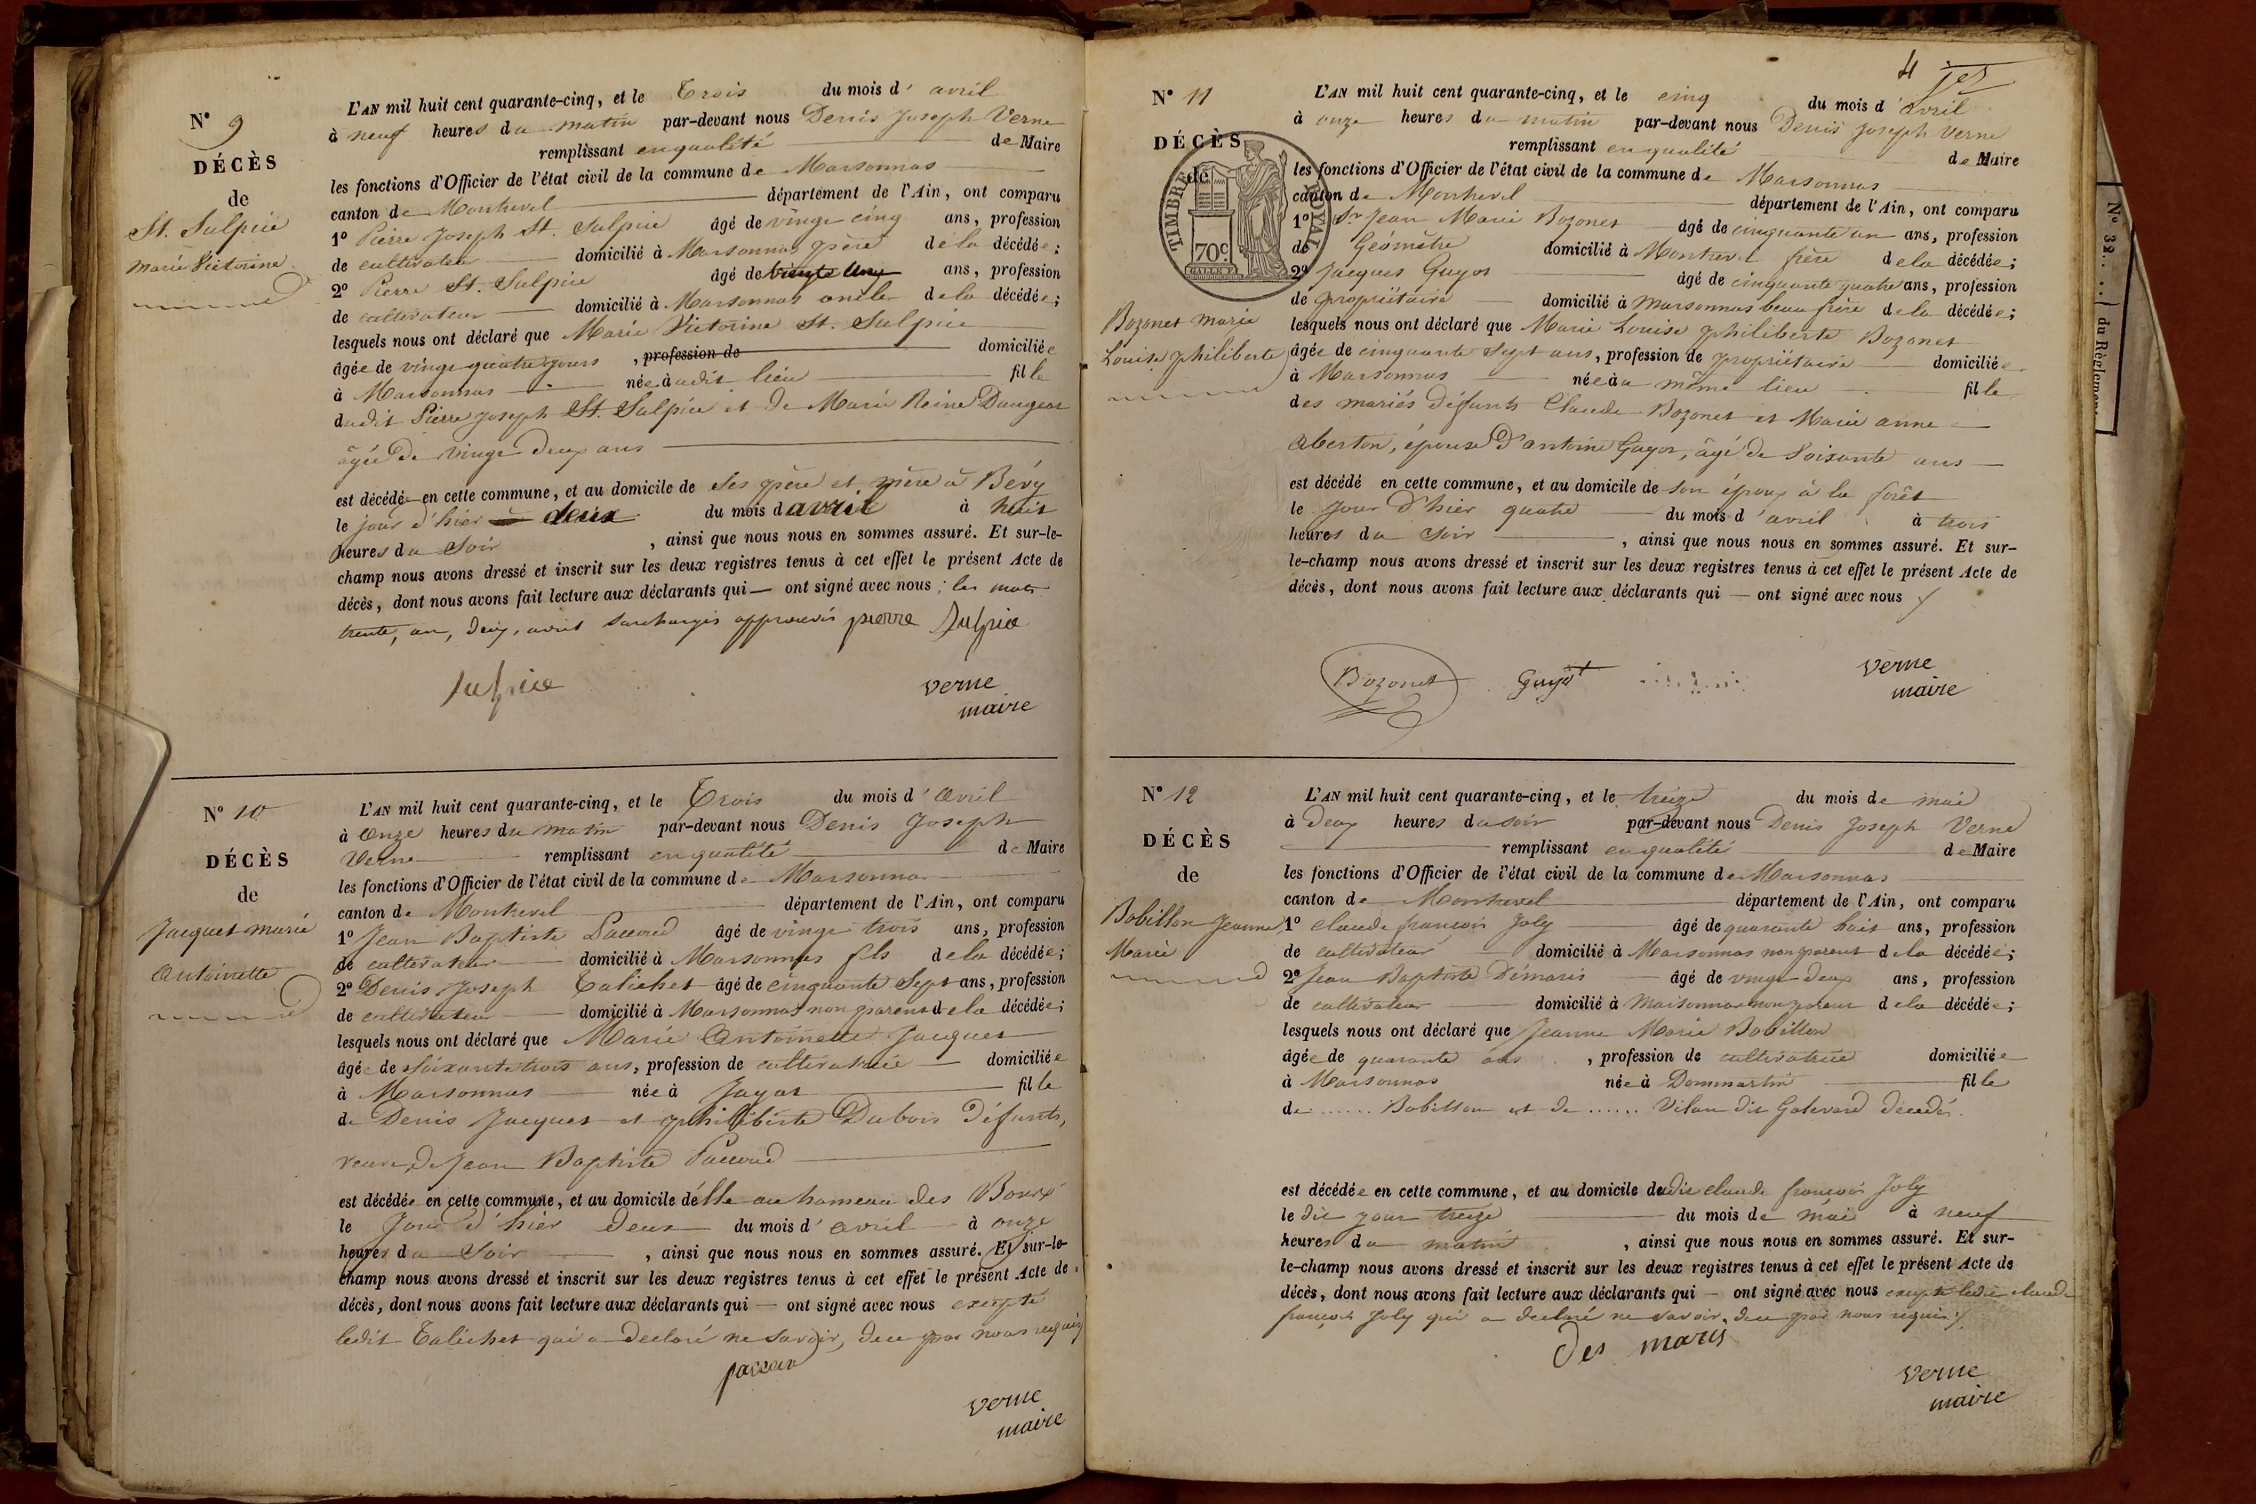 N° 9
DÉCÈS
de
St. Sulpice
Marie Victorine
L'AN mil huit cent quarante-cinq, et le Trois du mois d' avril
à neuf heures du matin par-devant nous Denis Joseph Verne
remplissant en qualité de Maire
les fonctions d'Officier de l'état civil de la commune de Marsonnas
canton de Montrevel département de l'Ain, ont comparu
1° Pierre Joseph St. Sulpice âgé de vingt cinq ans, profession
de cultivateur domicilié à Marsonnas père de la décédée;
2° Pierre St. Sulpice âgé de ans, profession
de cultivateur domicilié à Marsonnas oncle de la décédée;
lesquels nous ont déclaré que Marie Victorine St. Sulpice
âgée de vingt quatre jours , profession de domiciliée
à Marsonnas née audit lieu fille
dudit Pierre Joseph St. Sulpice et de Marie Reine Daugeat
âgée de vingt deux ans
est décédée en cette commune, et au domicile de ses père et mère à Bévy
le jour d'hier deux du mois d avril à huit
heures du soir , ainsi que nous nous en sommes assuré. Et sur-le-
champ nous avons dressé et inscrit sur les deux registres tenus à cet effet le présent Acte de
décès, dont nous avons fait lecture aux déclarants qui — ont signé avec nous ; les mots
trente, un, deux, avril surchargés approuvés pierre Sulpice
Sulpice
verne
maire
N° 10
DÉCÈS
de
Jacquet marie
antoinette
L'AN mil huit cent quarante-cinq, et le Trois du mois d' avril
à onze heures du matin par-devant nous Denis Joseph
Verne remplissant en qualité de Maire
les fonctions d'Officier de l'état civil de la commune de Marsonnas
canton de Montrevel département de l'Ain, ont comparu
1° Jean Baptiste Paccoud âgé de vingt trois ans, profession
de cultivateur domicilié à Marsonnas fils de la décédée;
2° Denis Joseph Calichet âgé de cinquante Sept ans, profession
de cultivateur domicilié à Marsonnas non parent de la décédée;
lesquels nous ont déclaré que Marie Antoinette Jacquet
âgée de soixante trois ans, profession de cultivatrice domiciliée
à Marsonnas née à Jayat fille
de Denis Jacquet et philiberte Dubois défunts,
veuve de Jean Baptiste Paccoud
est décédée en cette commune, et au domicile d'elle au hameau des
le Jour d'hier deux du mois d' avril à onze
heures du Soir , ainsi que nous nous en sommes assuré. Et sur-le-
champ nous avons dressé et inscrit sur les deux registres tenus à cet effet le présent Acte de
décès, dont nous avons fait lecture aux déclarants qui — ont signé avec nous excepté
ledit Calichet qui a declaré ne savoir, de ce par nous requis
paccoud
verne
maire
4
N° 11
DÉCÈS
de
TIMBRE ROYAL
70c
Bozonet marie
Louise philiberte
L'AN mil huit cent quarante-cinq, et le cinq du mois d' avril
à onze heures du matin par-devant nous Denis Joseph Verne
remplissant en qualité de Maire
les fonctions d'Officier de l'état civil de la commune de Marsonnas
canton de Montrevel département de l'Ain, ont comparu
1° Sr Jean Marie Bozonet âgé de cinquante un ans, profession
de Géomètre domicilié à Montrevel frère de la décédée;
2° Jacques Guyot âgé de cinquante quatre ans, profession
de propriétaire domicilié à marsonnas beau frère de la décédée;
lesquels nous ont déclaré que Marie Louise philiberte Bozonet
âgée de cinquante sept ans, profession de propriétaire domiciliée
à Marsonnas née au même lieu fille
des mariés défunts Claude Bozonet et Marie anne
aberton, épouse d'antoine Guyot, âgé de soixante ans
est décédé en cette commune, et au domicile de son époux à la forêt
le Jour d'hier quatre du mois d' avril à trois
heures du soir , ainsi que nous nous en sommes assuré. Et sur-
le-champ nous avons dressé et inscrit sur les deux registres tenus à cet effet le présent Acte de
décès, dont nous avons fait lecture aux déclarants qui — ont signé avec nous
Bozonet Guyot
verne
maire
N° 12
DÉCÈS
de
Bobillon Jeanne
Marie
L'AN mil huit cent quarante-cinq, et le treize du mois de mai
à deux heures du soir par-devant nous Denis Joseph Verne
remplissant en qualité de Maire
les fonctions d'Officier de l'état civil de la commune de Marsonnas
canton de Montrevel département de l'Ain, ont comparu
1° claude françois Joly âgé de quarante huit ans, profession
de cultivateur domicilié à Marsonnas non parent de la décédée;
2° Jean Baptiste Démaris âgé de vingt deux ans, profession
de cultivateur domicilié à Marsonnas non parent de la décédée;
lesquels nous ont déclaré que Jeanne Marie Bobillon
âgée de quarante ans , profession de cultivatrice domiciliée
à Marsonnas née à Dommartin fille
de ...... Bobillon et de ...... Vilan dit Galevard décédés.
est décédée en cette commune, et au domicile dudit claude françois Joly
le dit jour treize du mois de mai à neuf
heures du matin , ainsi que nous nous en sommes assuré. Et sur-
le-champ nous avons dressé et inscrit sur les deux registres tenus à cet effet le présent Acte de
décès, dont nous avons fait lecture aux déclarants qui — ont signé avec nous excepté ledit claude
françois Joly qui a declaré ne savoir, de ce par nous requis
Des maris
verne
maire
N° 32.... ( du Règlement